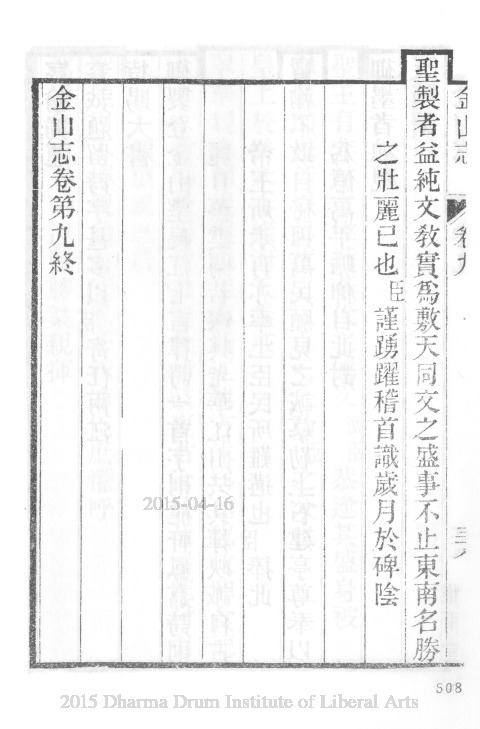 金山志
卷九
聖製者益純文敎實爲敷天同文之盛事不止東南名勝
之壯麗已也臣謹踴躍稽首識歲月於碑陰
金山志卷第九終
2015-04-16
508
2015 Dharma Drum Institute of Liberal Arts